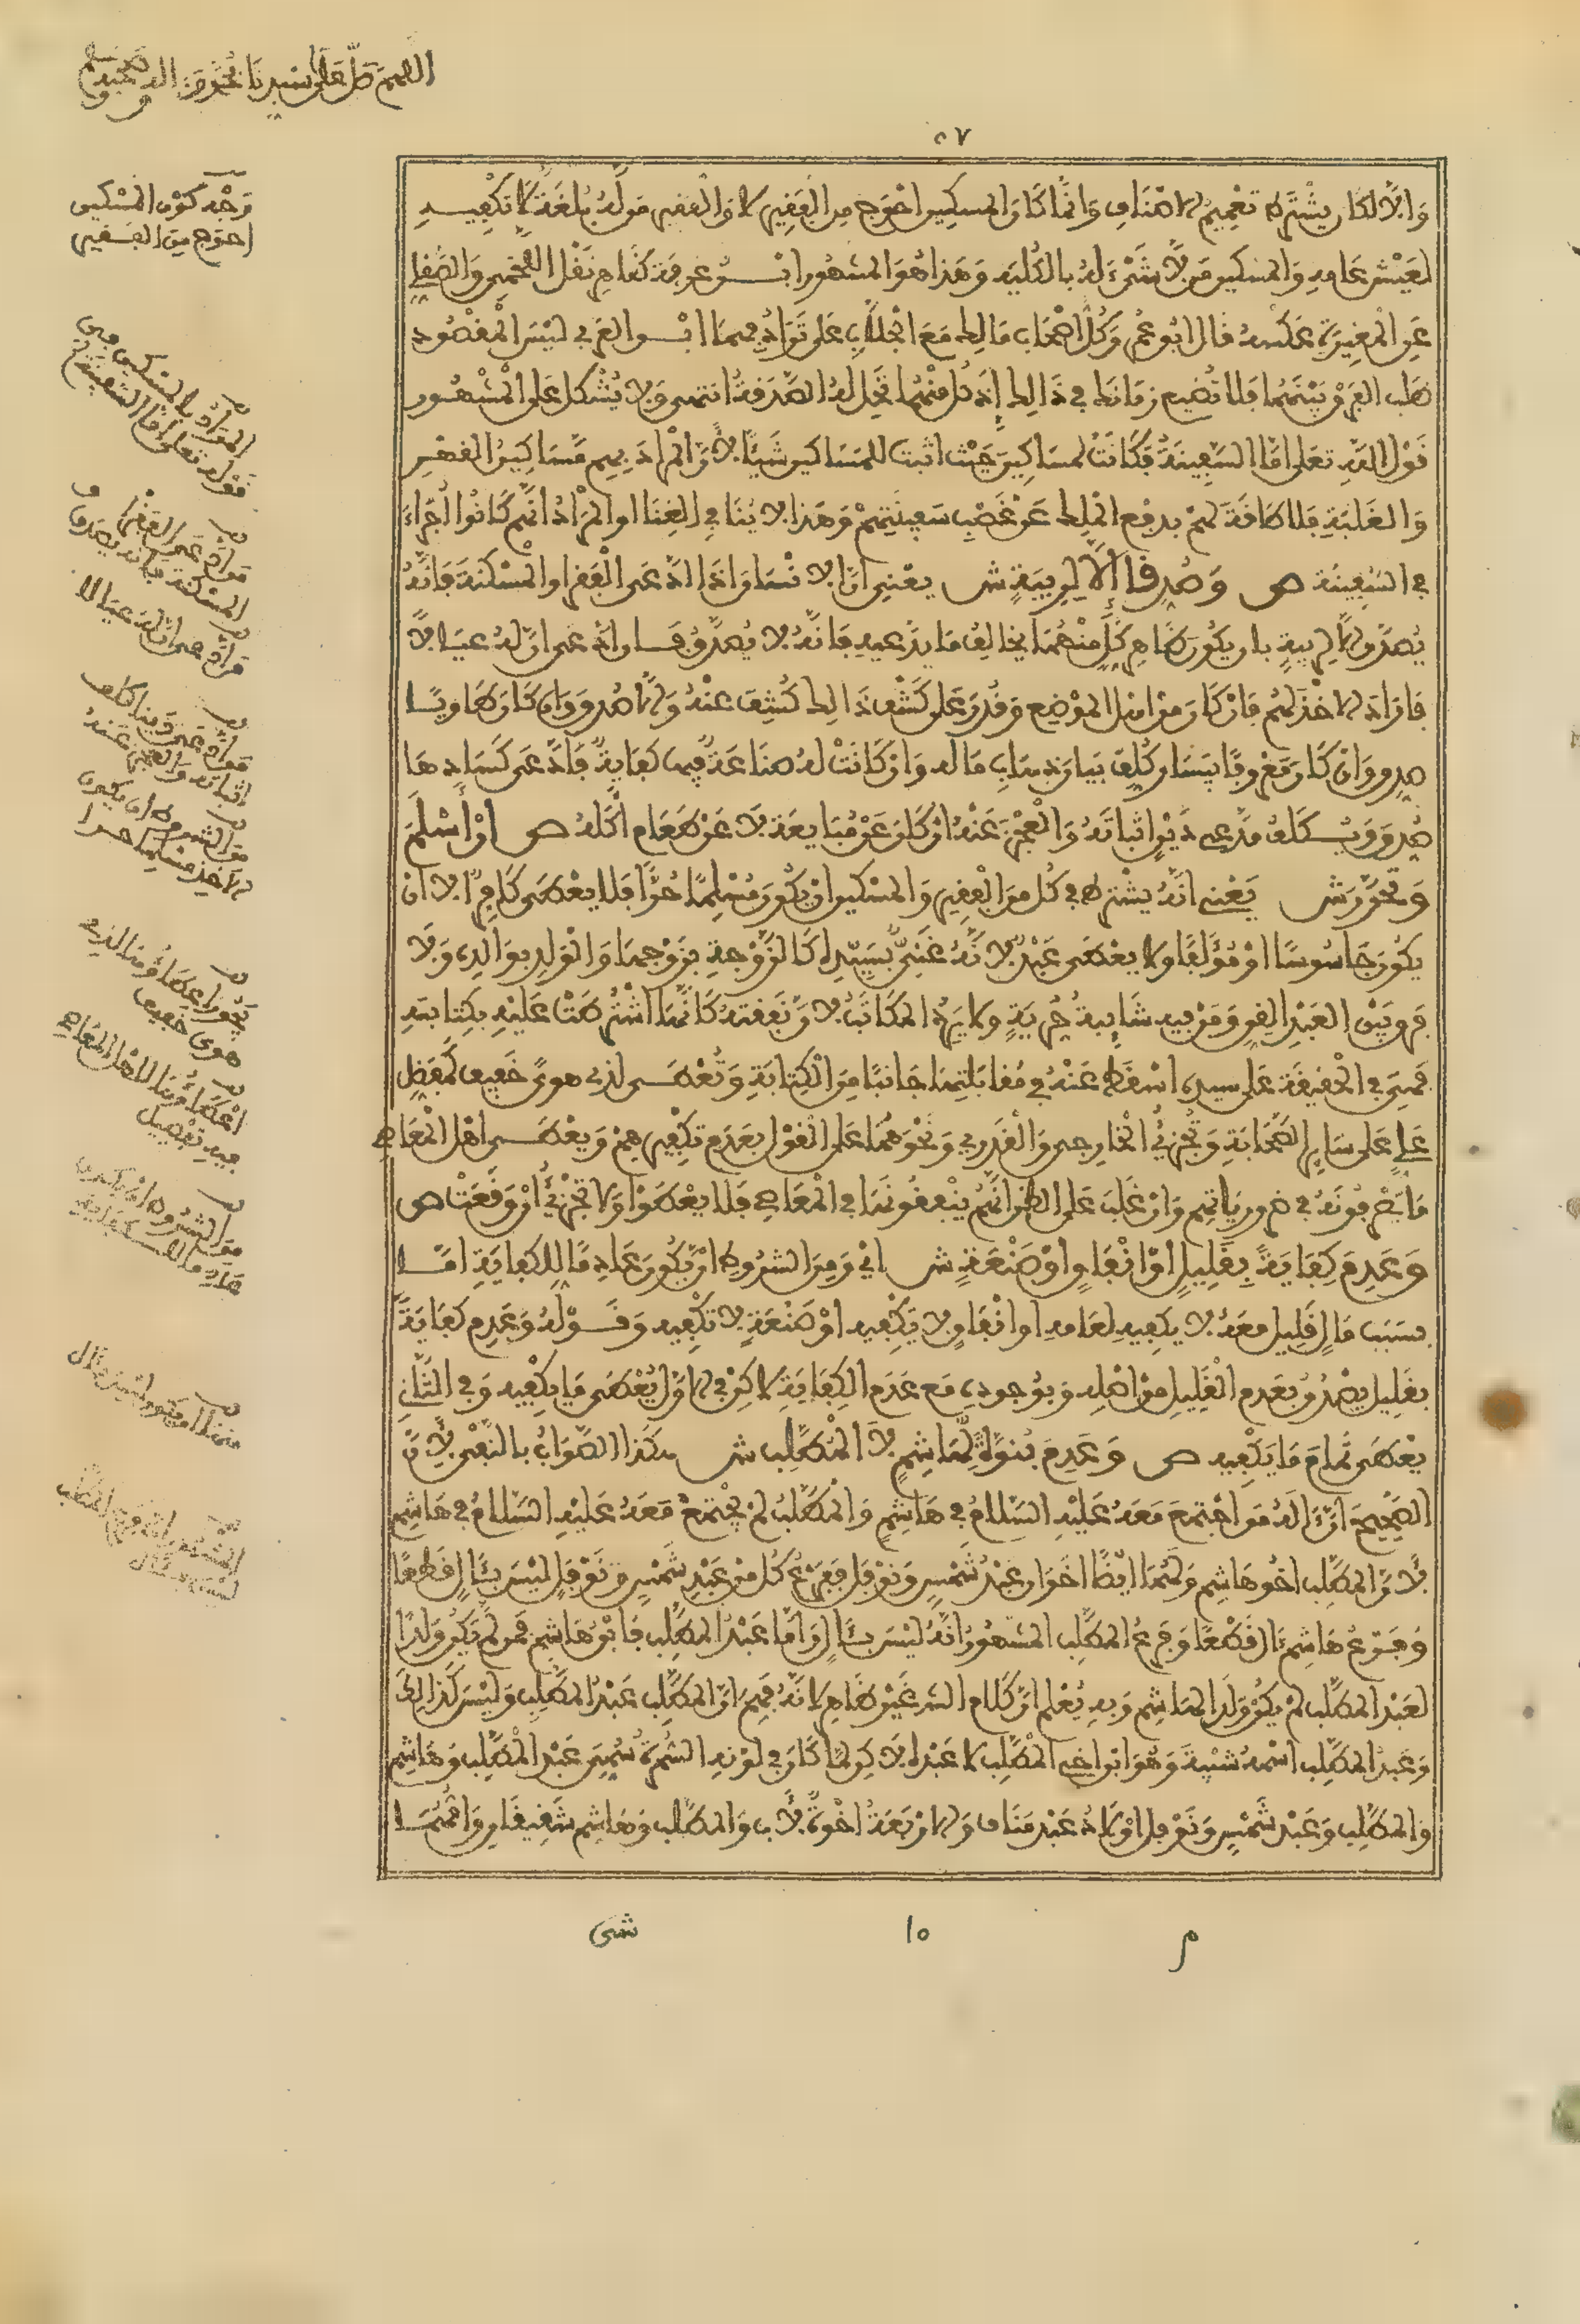 اللهم صل على سيدنا محمد وعلى آله وصحبه وسلم
٥٧
وإلا لكان يشترط تعميم الأصناف وإنما كان المسكين أحوج من الفقير لأن الفقير من له بلغة لا تكفيه
لعيش عامه والمسكين من لا شيء له بالكلية وهذا هو المشهور ابن عرفة ظاهر نقل اللخمي والصقلي
عن المغيرة عكسه قال أبو عمر وكل أصحاب مالك مع الجلاب على ترادفهما ابن العربي ليس المقصود
طلب الفرق بينهما فلا تضيع زمانك في ذالك إذ كل منهما تحل له الصدقة انتهى ولا يشكل على المشهور
قول الله تعلى أما السفينة فكانت لمساكين حيث أثبت للمساكين شيئا لأن المراد بهم مساكين القهر
والغلبة فلا طاقة لهم بدفع الملك عن غصب سفينتهم وهذا لا ينافي الغنا أو المراد أنهم كانوا أجراء
في السفينة ص وصدقا إلا لريبة ش يعني أن الإنسان إذا ادعى الفقر أو المسكنة فإنه
يصدق إلا لريبة بأن يكون ظاهر كل منهما يخالف ما يدعيه فإنه لا يصدق فإن ادعى أن له عيالا
فأراد الأخذ لهم فإن كان من أهل الموضع وقدر على كشف ذالك كشف عنه وإلا صدق وإن كان طاويا
صدق وإن كان معروفا بيسار كلف بيان ذهاب ماله وإن كانت له صناعة فيها كفاية فادعى كسادها
صدق ويكلف مدعي دين إثباته والعجز عنه إن كان عن مبايعة لا عن طعام أكله ص إن أسلم
وتحرر ش يعني أنه يشترط في كل من الفقير والمسكين أن يكون مسلما حرا فلا يعطى كافر إلا أن
يكون جاسوسا أو مؤلفا ولا يعطى عبد لأنه غني بسيده كالزوجة بزوجها والولد بوالده ولا
فرق بين العبد القن ومن فيه شائبة حرية ولا يرد المكاتب لأن نفقته كأنها اشترطت عليه بكتابته
فهي في الحقيقة على سيده أسقط عنه في مقابلتها جانبا من الكتابة وتعطى لذي هوى خفيف كمفضل
علي على سائر الصحابة وتجزئ الخارجي والقدري ونحوهما على القول بعدم تكفيرهم ويعطى أهل المعاصي
ما يصرفونه في ضرورياتهم وإن غلب على الظن أنهم ينفقونها في المعاصي فلا يعطوا ولا تجزئ إن وقعت ص
وعدم كفاية بقليل أو إنفاق أو صنعة ش أي ومن الشروط أن يكون عادما للكفاية إما
بسبب مال قليل معه لا يكفيه لعامه أو إنفاق لا يكفيه أو صنعة لا تكفيه وقوله وعدم كفاية
بقليل يصدق بعدم القليل من أصله وبوجوده مع عدم الكفاية لاكن في الأول يعطى ما يكفيه وفي الثاني
يعطى تمام ما يكفيه ص وعدم بنوة لهاشم لا المطلب ش هكذا الصواب بالنفي لأن
الصحيح أن آله من اجتمع معه عليه السلام في هاشم والمطلب لم يجتمع معه عليه السلام في هاشم
لأن المطلب أخو هاشم ولهما أيضا أخوان عبد شمس ونوفل ففرع كل من عبد شمس ونوفل ليس بئال قطعا
وفرع هاشم ءال قطعا وفرع المطلب المشهور أنه ليس بئال وأما عبد المطلب فابن هاشم فمن لم يكن ولدا
لعبد المطلب لم يكن ولدا لهاشم وبه يعلم أن كلام الشرح غير ظاهر لأنه فهم أن المطلب عبد المطلب وليس كذالك
وعبد المطلب اسمه شيبة وهو ابن أخي المطلب لا عبده لاكن لما كان في لونه السمرة سمي عبد المطلب وهاشم
والمطلب وعبد شمس ونوفل أولاد عبد مناف والأربعة إخوة لأب والمطلب وهاشم شقيقان وأمهما
م ١٥ ش
وجه كون المسكين
أحوج من الفقير
قف المراد بالمسكين من
قوله تعلى أما السفينة
قف من ادعى الفقر أو
المسكنة فإنه يصدق
قف من ادعى أن له عيالا
قف من ادعى دينا كلف
إثباته والعجز عنه
قف من الشروط أن يكون
الآخذ مسلما حرا
قف يجوز إعطاؤها لذي
هوى خفيف
قف إعطاؤها لأهل المعاصي
فيه تفصيل
قف من الشروط أن يكون
عادما للكفاية